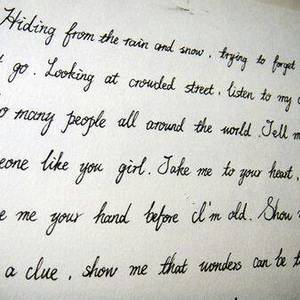 Hiding from the rain and snow. trying to forget
t go. Looking at crowded street, listen to my o
o many people all around the world. Tell m
eone like you girl. Take me to your heart,
e me your hand before I'm old. Show
a clue, show me that wonders can be t